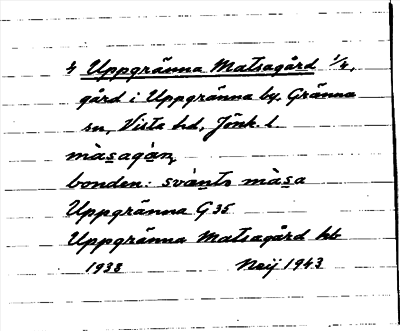 4 Uppgränna Matsagård 1/4,
gård i Uppgränna by, Gränna
sn, Vista hd, Jönk. l.
màsagàn,
bonden: svànts màsa
Uppgränna G 35
Uppgränna Matsagård kb
1933 Neij 1943